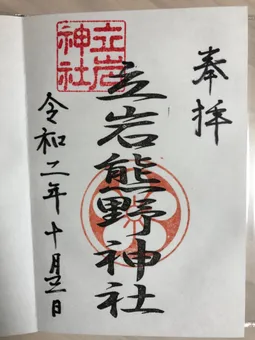 奉拝
立岩
神社
立岩熊野神社
令和二年十月日